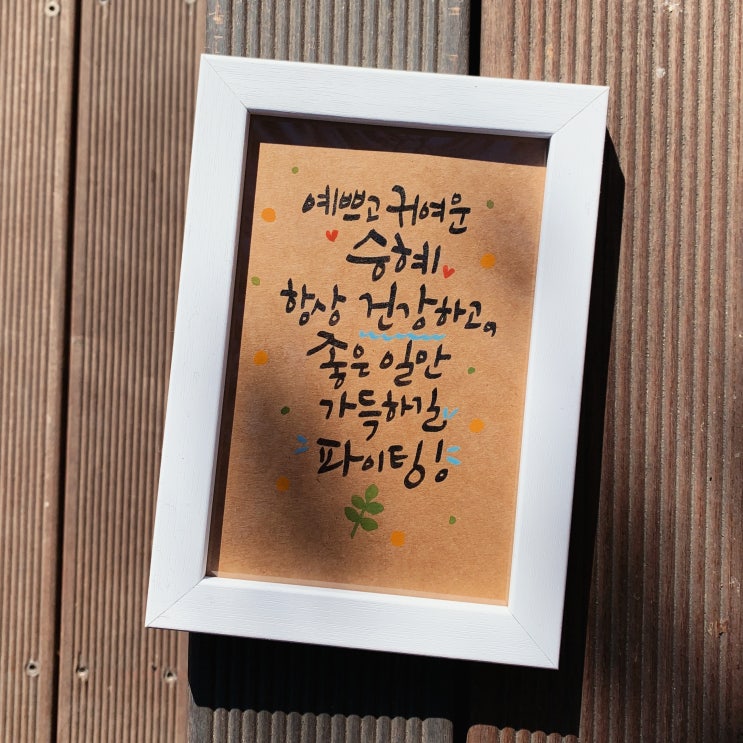 예쁘고 귀여운
승혜
항상 건강하고,
좋은 일만
가득하길
파이팅!